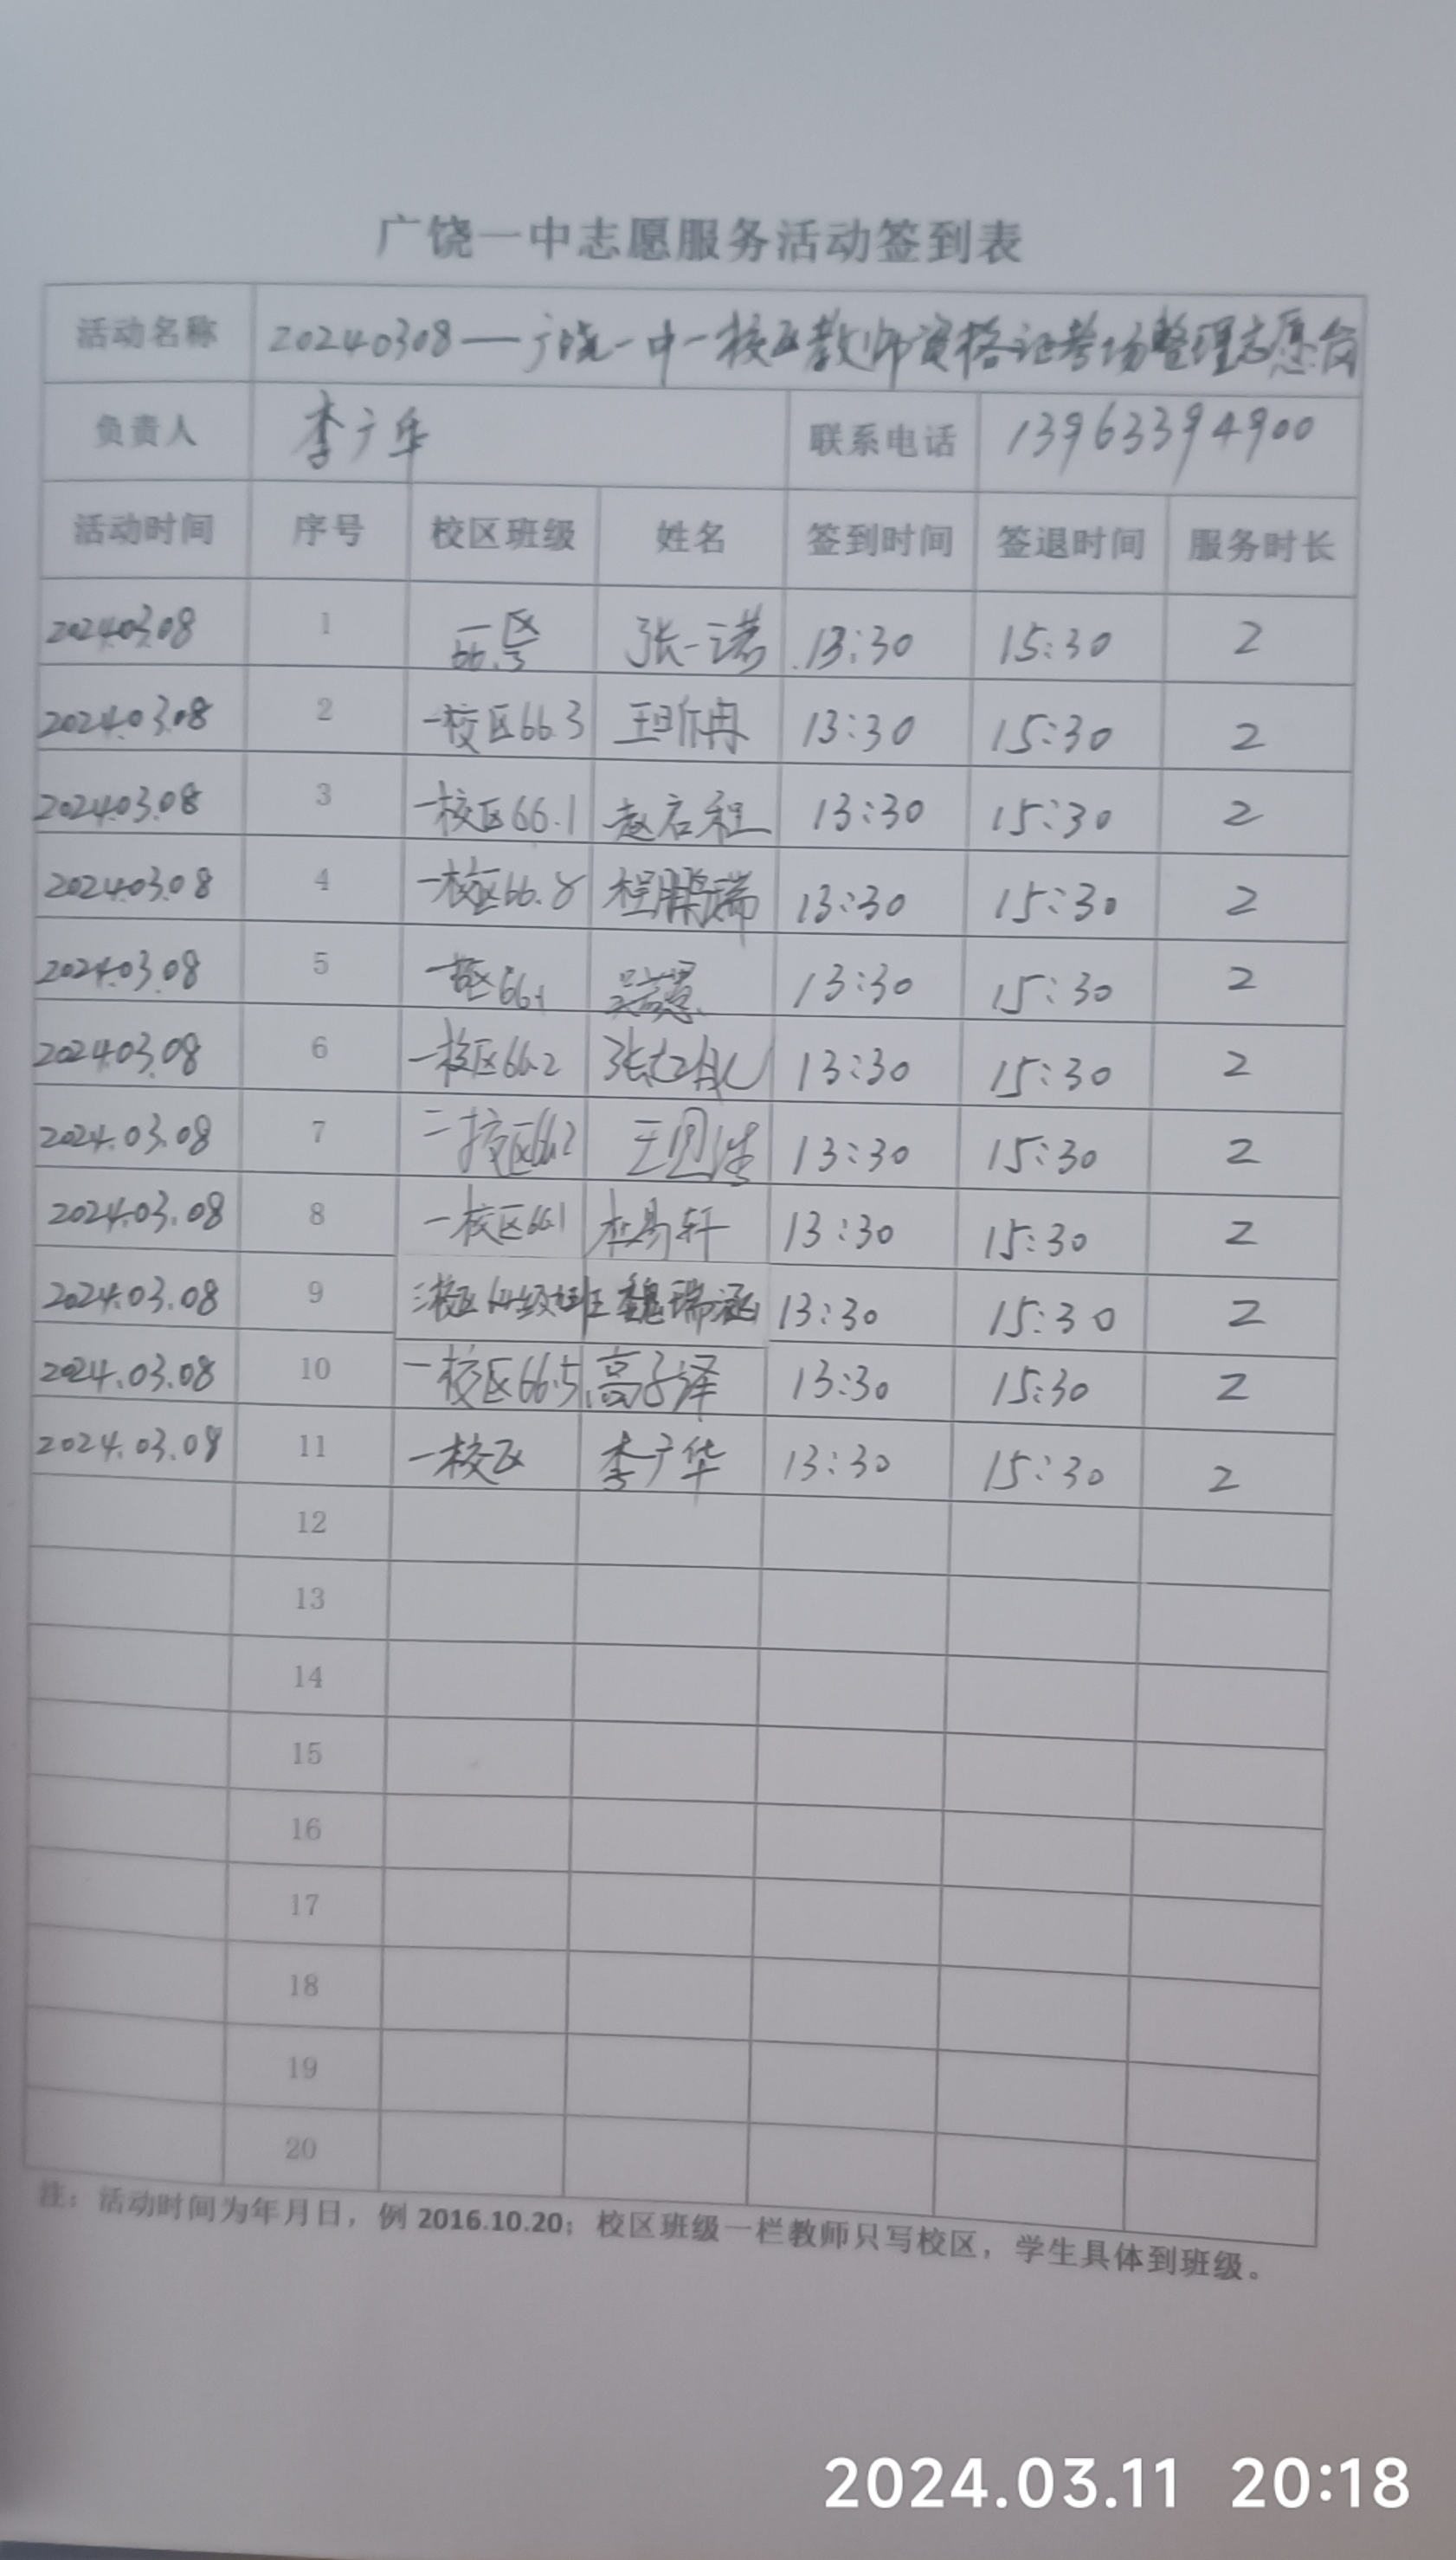 广饶一中志愿服务活动签到表
活动名称 20240308—广饶一中一校区教师资格证考场整理志愿
负责人 李广华 联系电话 13963394900
活动时间 序号 校区班级 姓名 签到时间 签退时间 服务时长
2024.03.08 1 一区 66.3 张一诺 13:30 15:30 2
2024.03.08 2 一校区66.3 王昕冉 13:30 15:30 2
2024.03.08 3 一校区66.1 赵启程 13:30 15:30 2
2024.03.08 4 一校区66.8 程鹏瑞 13:30 15:30 2
2024.03.08 5 一校区66.1 13:30 15:30 2
2024.03.08 6 一校区66.2 13:30 15:30 2
2024.03.08 7 二校区66.2 13:30 15:30 2
2024.03.08 8 一校区66.1 杜易轩 13:30 15:30 2
2024.03.08 9 魏瑞涵 13:30 15:30 2
2024.03.08 10 一校区66.5 高子泽 13:30 15:30 2
2024.03.08 11 一校区 李广华 13:30 15:30 2
12
13
14
15
16
17
18
19
20
注：活动时间为年月日，例 2016.10.20；校区班级一栏教师只写校区，学生具体到班级。
2024.03.11 20:18